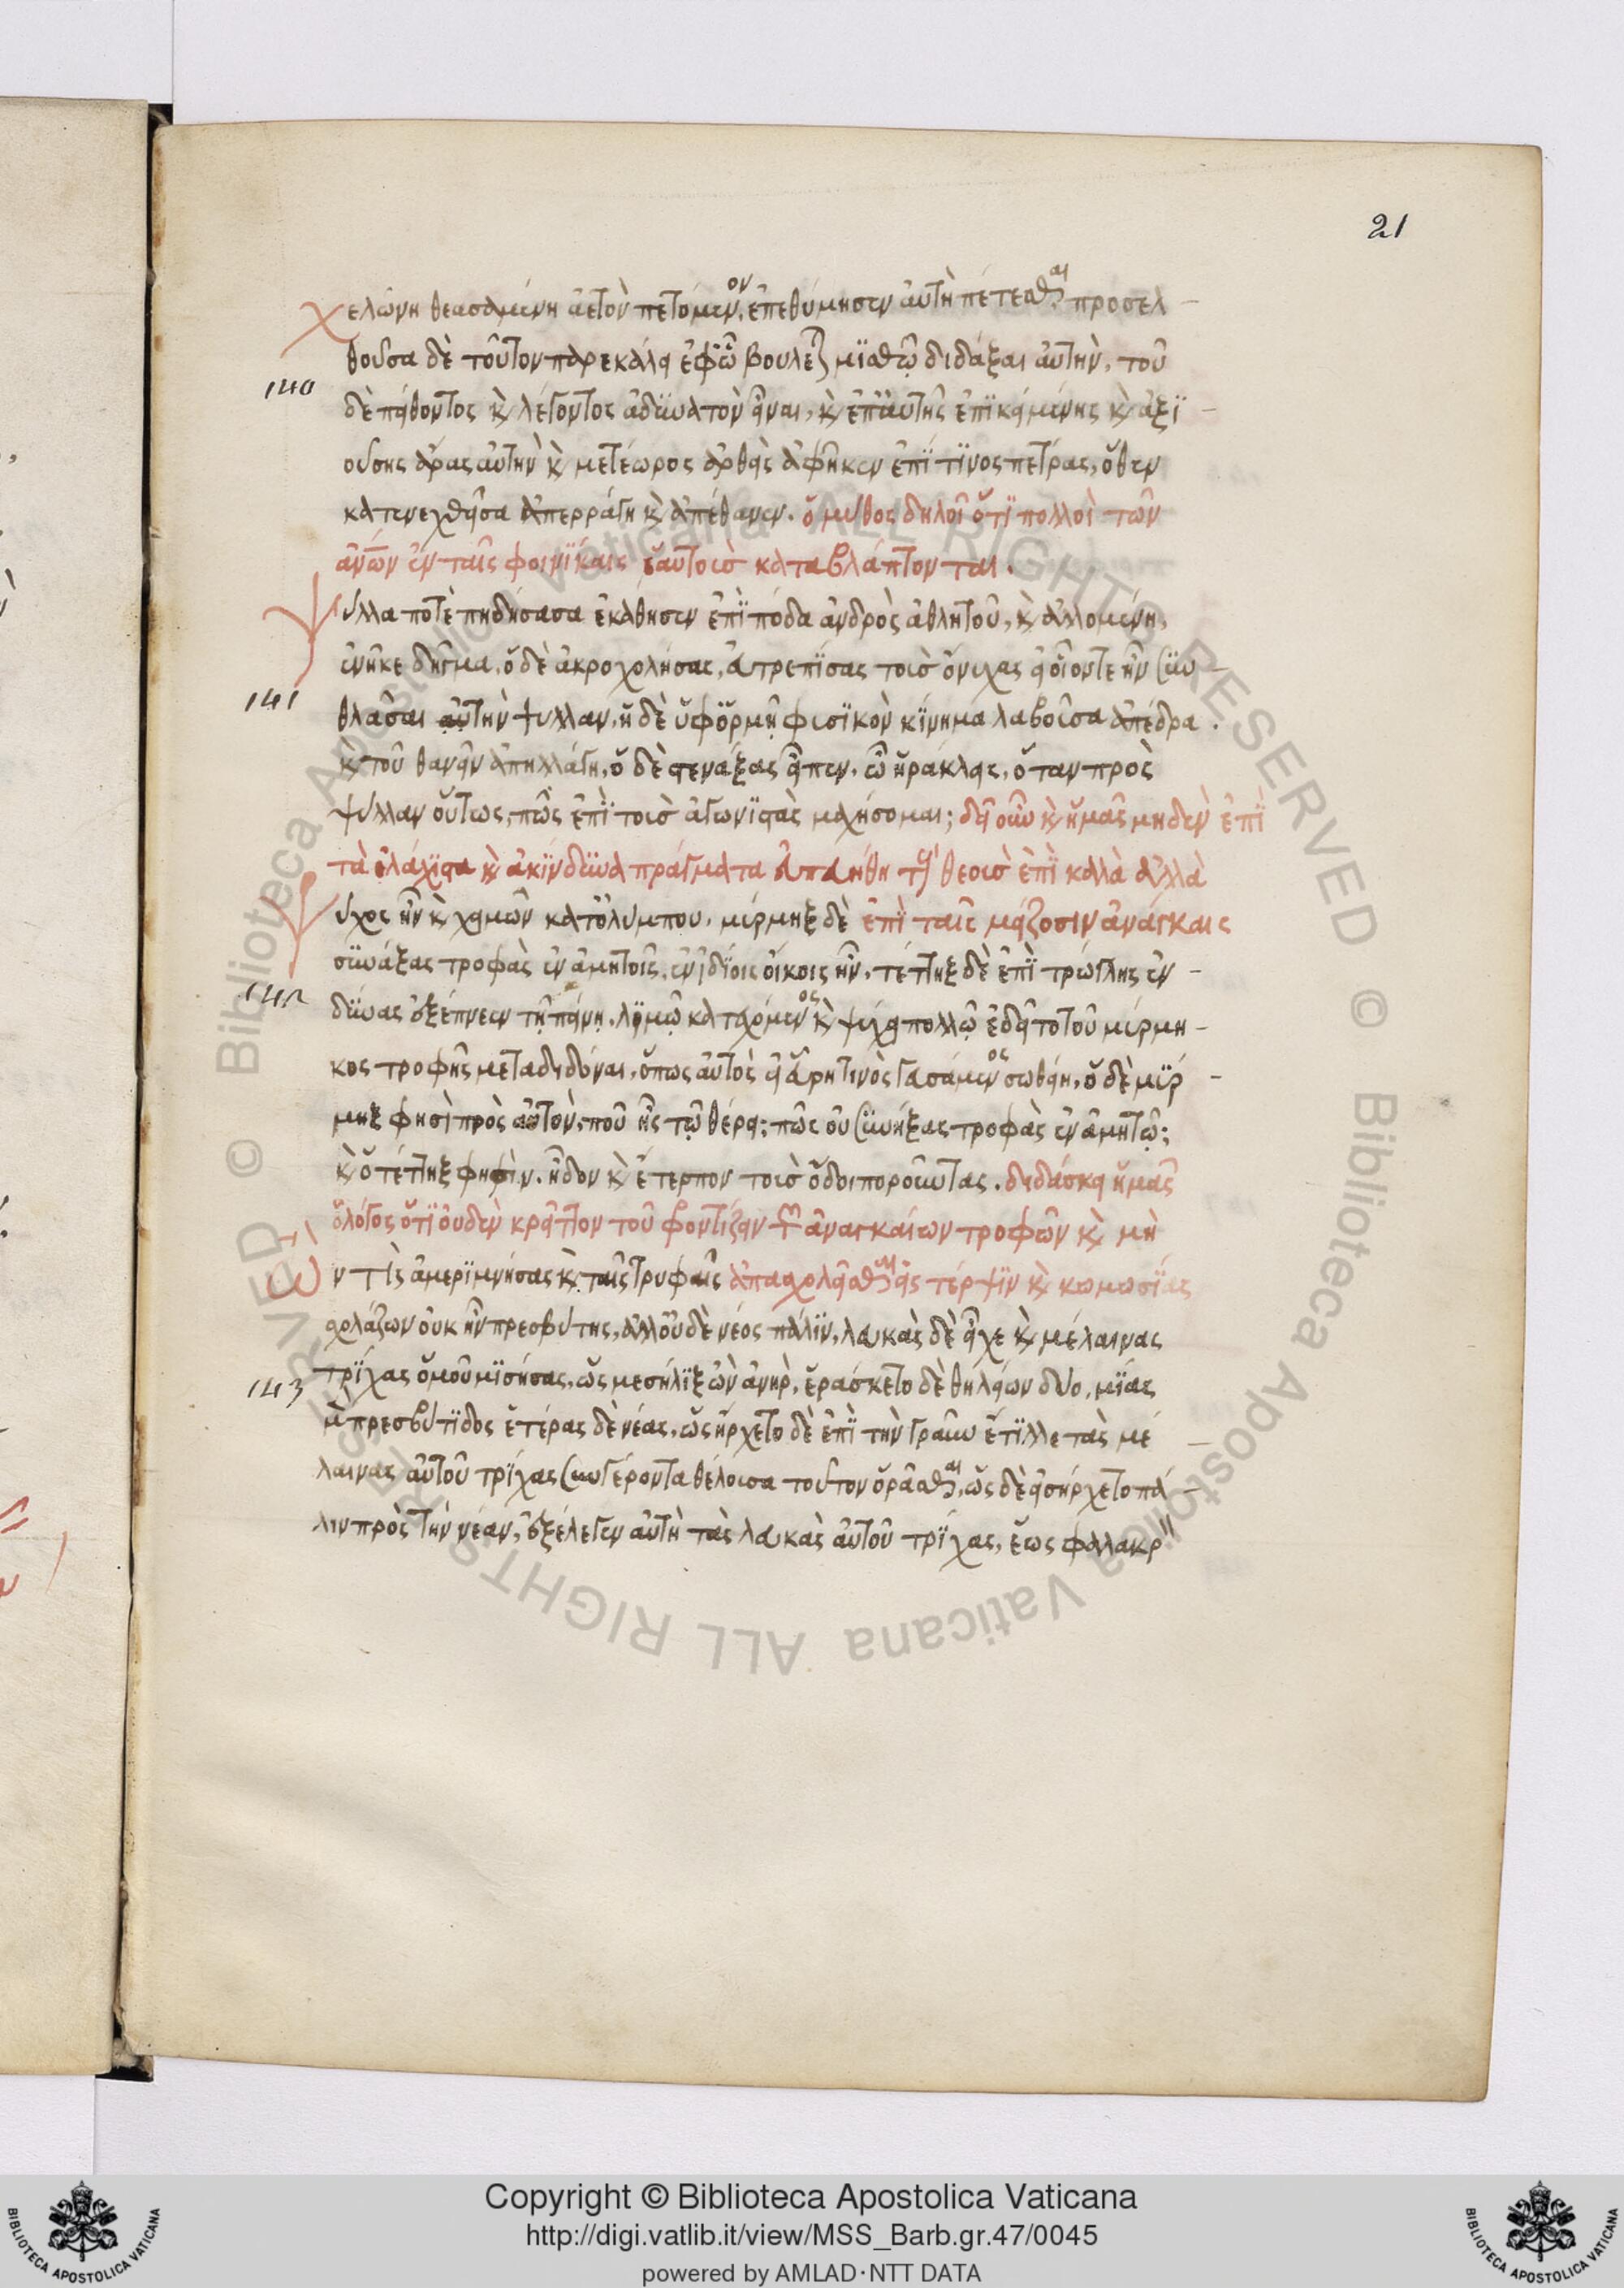 21
χελώνη θεασαμένη ἀετὸν πετόμενον, ἐπεθύμησεν αὐτὴ πέτεσθαι προσελ-
θοῦσα δὲ τοῦτον παρεκάλει ἐφ' ὧ βούλεται μϊσθῷ διδάξαι αὐτὴν, τοῦ
140
δὲ πείθοντος κὶ λέγοντος ἀδύνατον εἶναι, κὶ ἐπ' αὐτῆς ἐπϊκειμένης κὶ ἀξϊ-
ούσης ἄρας αὐτὴν κὶ μετέωρος ἀρθεὶς ἀφῆκεν ἐπί τϊνος πέτρας, ὅθεν
κατενεχθεῖσα ἀπερράγη κὶ ἀπέθανεν. ὁ μύθος δηλοῖ ὅτϊ πολλοὶ τῶν
ἀνων ἐν ταῖς φοινϊκαις ἑαυτοισ καταβλάπτονται.
ψύλλα ποτὲ πηδήσασα ἐκάθησεν ἐπὶ πόδα ἀνδρὸς ἀθλητοῦ, κὶ ἁλλομένη,
ἐνῆκε δῆγμα, ὁ δὲ ἀκροχολήσας, εὐτρεπϊσας τοισ ὄνυχας οἷόν τε ἦν συν-
141
θλᾶσαι αὐτὴν ψύλλαν, ἡ δὲ ὑφ' ὁρμῇ φισϊκὸν κϊνημα λαβοῖσα ἀπέδρα.
κὶ τοῦ θανεῖν ἀπηλλάγη, ὁ δὲ στενάξας εἶπεν, ὦ ἡράκλεις, ὅταν πρὸς
ψύλλαν οὕτως, πῶς ἐπὶ τοισ ἀγωνϊστὰς μαχήσομαι; δεῖ οὖν κὶ ἡμᾶς μηδεν ἐπὶ
τὰ ἐλάχϊστα κὶ ἀκϊνδυνα πράγματα θεοισ ἐπὶ καλλὰ ἀλλὰ
ψύχος ἦν κὶ χειμὼν κατ' ὀλύμπου, μύρμηξ δὲ ἐπὶ ταῖς μείζοσιν ἀνάγκαις
συνάξας τροφὰς ἐν ἀμητοῖς, ἐν ἰδϊοις οἴκοις ἦν, τέττηξ δὲ ἐπὶ τρώγλης ἐν-
142
δύνας ἐξέπνεεν τῇ πείνῃ, λϊμῷ κατεχόμενος κὶ ψύχει πολλῷ ἐδεῖτο τοῦ μύρμη-
κος τροφῆς μεταδιδόναι, ὅπως αὐτὸς τινὸς γασάμενος σωθείη, ὁ δὲ μϊρ-
μηξ φησὶ πρὸς αὐτὸν, ποῦ ἦς τῷ θέρει; πῶς οὐ συνῆξας τροφὰς ἐν ἀμητῷ;
κὶ ὁ τέττηξ φησὶν. ἦδον κὶ ἔτερπον τοισ ὁδοιποροῦντας. διδάσκει ἡμᾶς
ὁ λόγος ὅτϊ οὐδὲν κρεῖττον τοῦ φροντίζειν τῶν ἀναγκαίων τροφῶν κὶ μὴ
ὤν τὶς ἀμερϊμνήσας κὶ ταῖς τρυφαῖς ἀπασχολεῖσθαι εἰς τέρψϊν κὶ κωμωσϊας
σχολάζων οὐκ ἦν πρεσβύτης, ἀλλ' οὐδὲ νέος πάλϊν, λευκὰς δὲ εἶχε κὶ μέλαινας
τρϊχας ὁμοῦ μϊσήσας, ὡς μεσήλϊξ ὢν ἀνὴρ, ἠράσκετο δὲ θηλείων δύο, μϊᾶς
143
μὲν πρεσβύτϊδος ἑτέρας δὲ νέας, ὡς ἤρχετο δὲ ἐπὶ τὴν γραῦν ἔτϊλλε τὰς με-
λαινας αὐτοῦ τρϊχας συγγέροντα θέλοισα τουτον ὁρᾶσθαι, ὡς δὲ εἰσήρχετο πά-
λιν πρὸς τὴν νέαν, ἐξέλεγεν αὐτὴ τὰς λευκὰς αὐτοῦ τρϊχας, ἕως φαλακρ
Copyright © Biblioteca Apostolica Vaticana
http://digi.vatlib.it/view/MSS_Barb.gr.47/0045
powered by AMLAD·NTT DATA